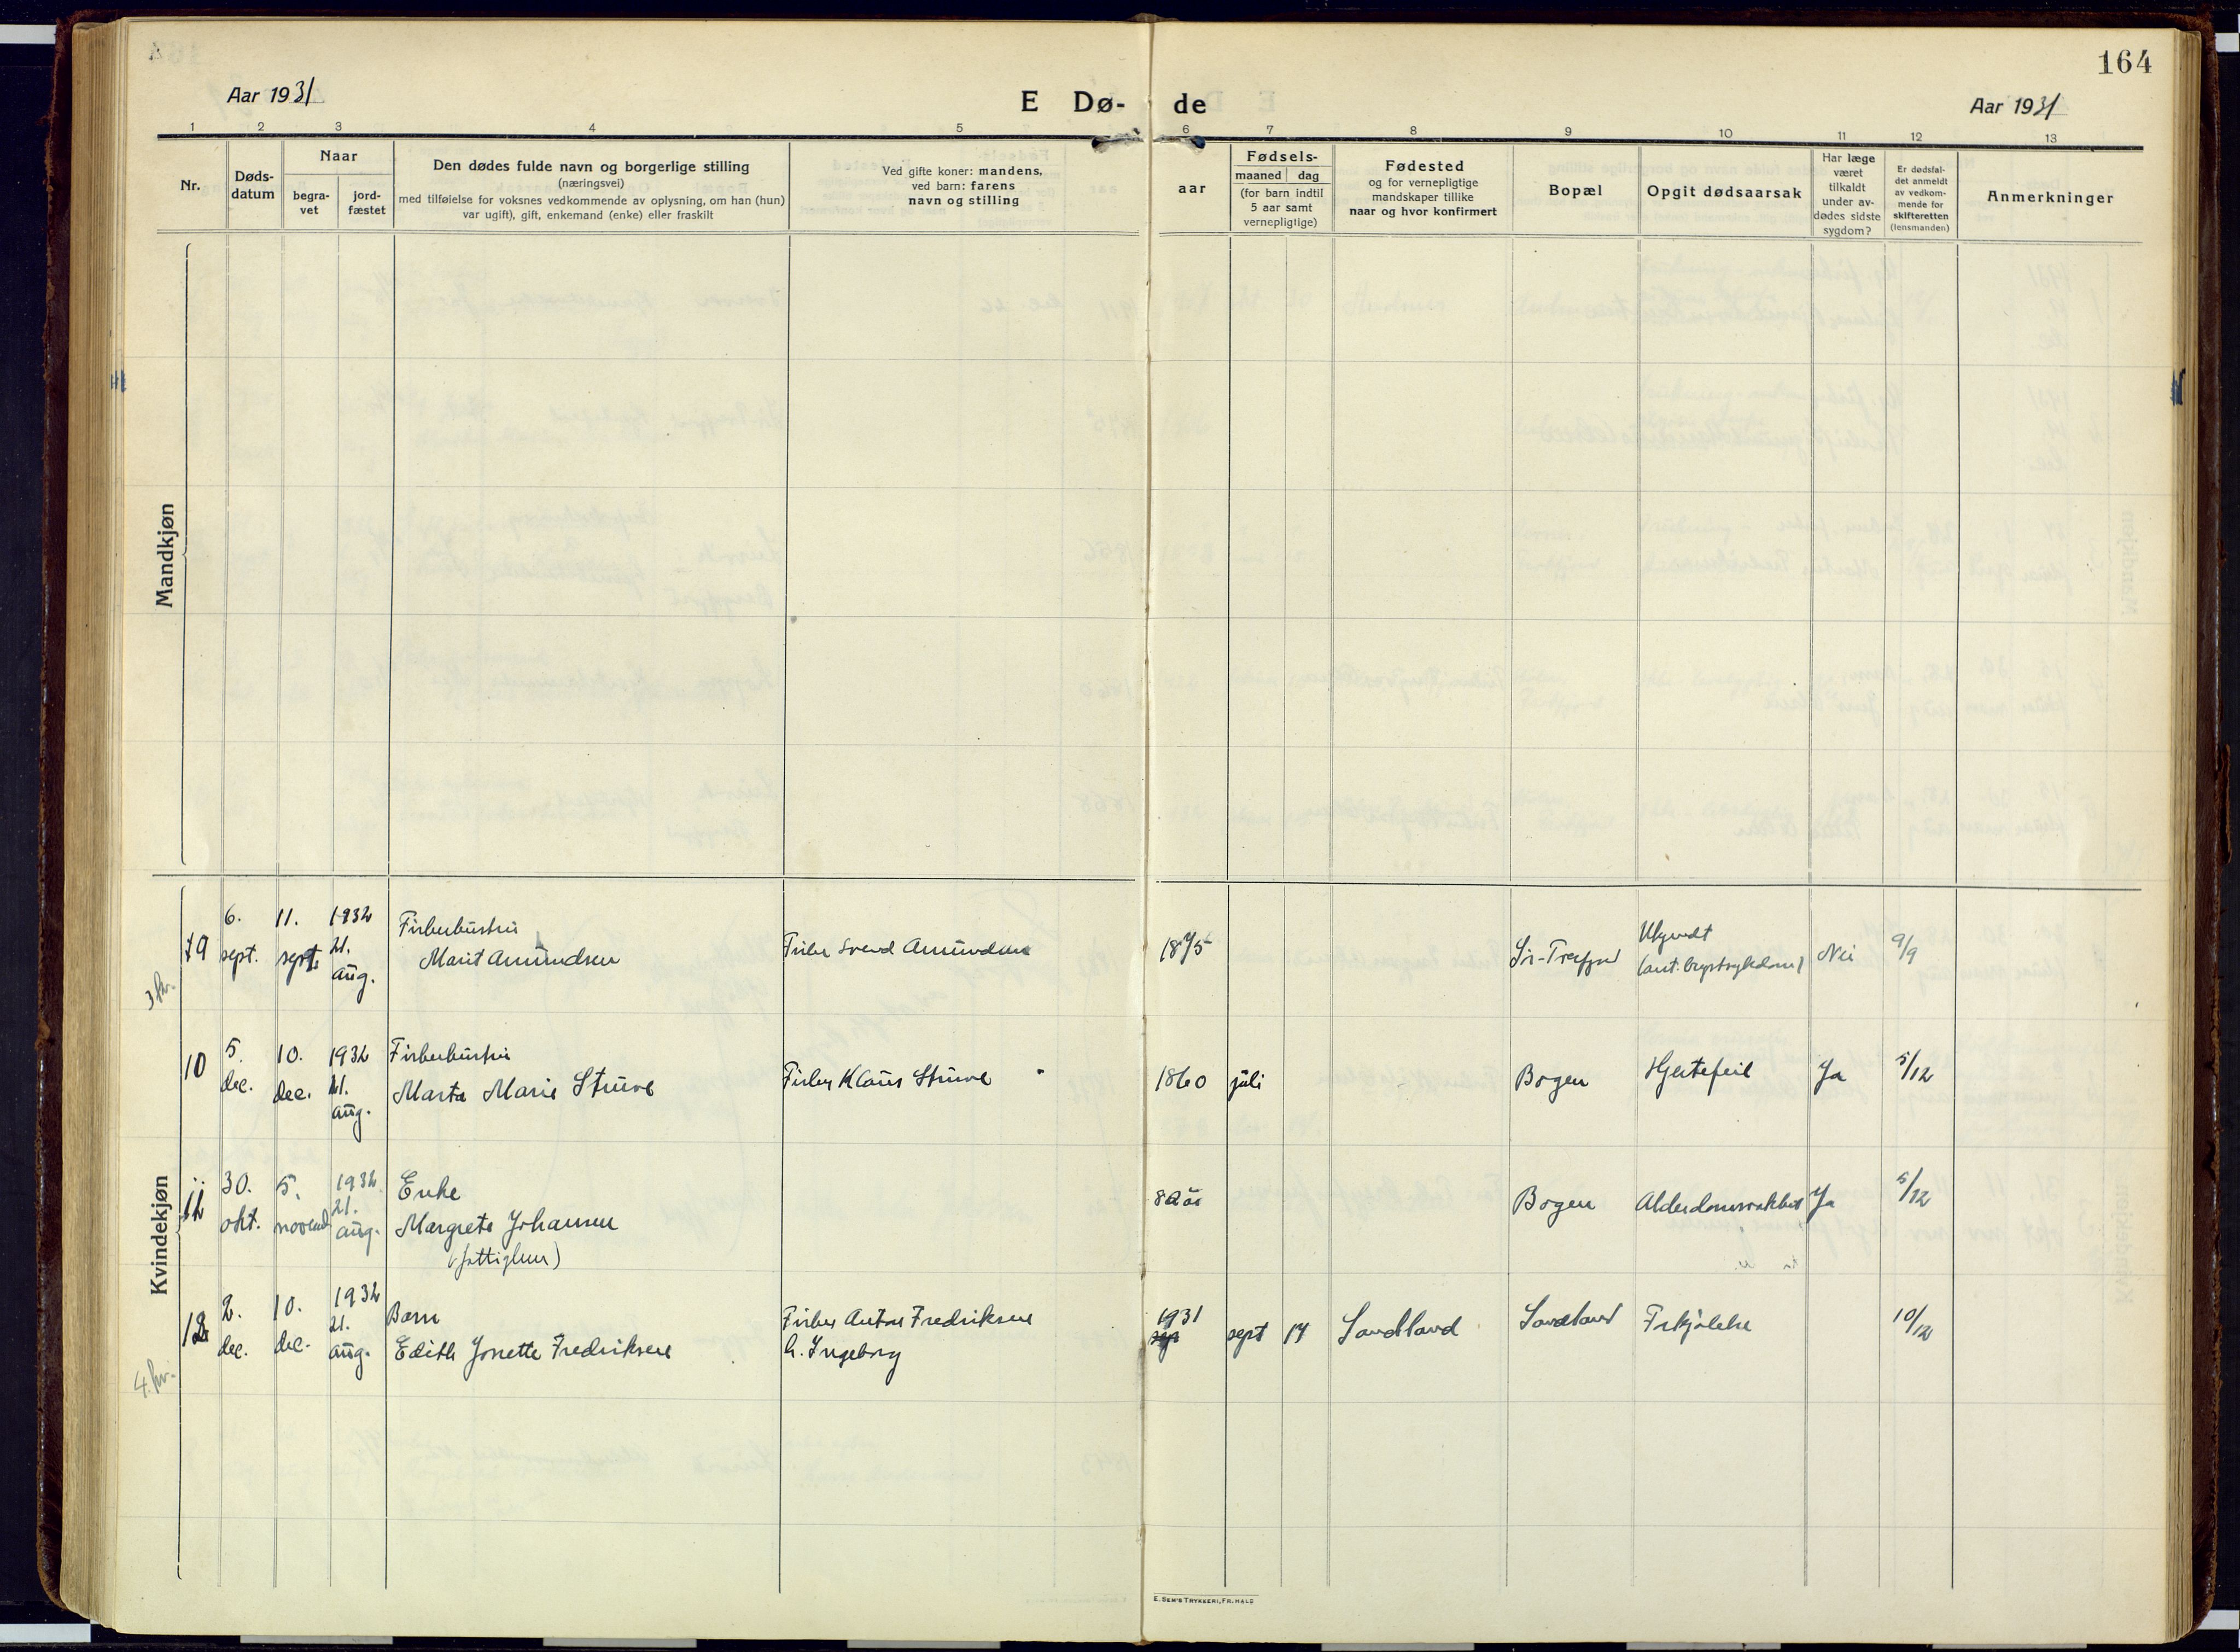 164
Aar 1931
E Dø- de
Aar 1931
1 2 3 4 5 6 7 8 9 10 11 12 13
Nr.
Døds-
datum
Naar
begra-
vet
jord-
fæstet
Den dødes fulde navn og borgerlige stilling
(næringsvei)
med tilføielse for voksnes vedkommende av oplysning, om han (hun)
var ugift), gift, enkemand (enke) eller fraskilt
Ved gifte koner: mandens,
ved barn: farens
navn og stilling
aar
Fødsels-
maaned dag
(for barn indtil
5 aar samt
vernepligtige)
Fødested
og for vernepligtige
mandskaper tillike
naar og hvor konfirmert
Bopæl
Opgit dødsaarsak
Har læge
været
tilkaldt
under av-
dødes sidste
sygdom?
Er dødsfal-
det anmeldt
av vedkom-
mende for
skifteretten
(lensmanden)
Anmerkninger
Mandkjøn
Kvindekjøn
9
6.
sept.
11.
sept.
1932
21.
aug.
Fiskerhustru
Marit Amundsen
Fisker Svend Amundsen
1875
Sør-Trefjord
Ukjendt
(ant. brystsykdom)
Nei
9/9
3 kr.
10
5.
dec.
10.
dec.
1932
21.
aug.
Fiskerhustru
Marta Marie Struve
Fisker Klaus Struve
1860 juli
Bogen
Hjertefeil
Ja
5/12
11
30.
okt.
5.
novemb
1932
21.
aug.
Enke
Margrete Johansen
(fattiglem)
82 år
Bogen
Alderdomssvakhet
Ja
5/12
12
2.
dec.
10.
dec.
1932
21.
aug.
Barn
Edith Jonette Fredriksen
Fisker Anton Fredriksen
h. Ingeborg
1931
sept 14
Sandland
Sandland
Forkjølelse
10/12
4 kr.
E. SEM'S TRYKKERI, FR.HALD